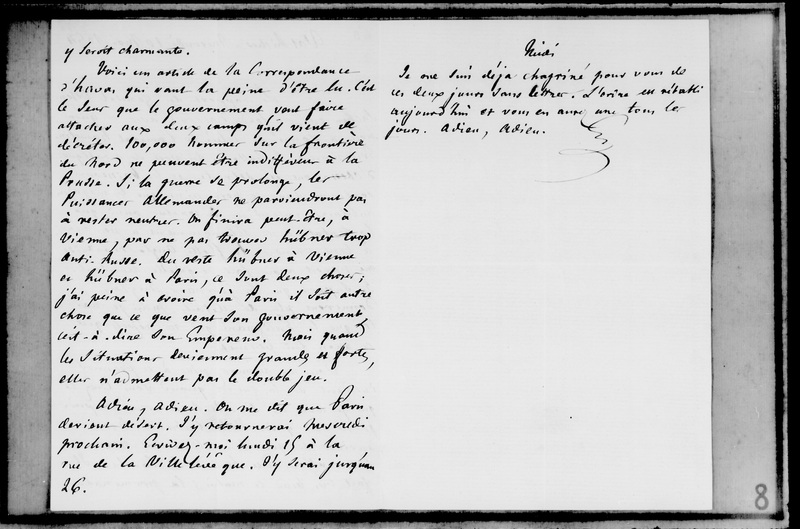 y seroit charmante.
Voici un article de la Correspondance
d'havas qui vaut la peine d'être lu. C'est
le sens que le gouvernement veut faire
attacher aux deux camps qu'il vient de
décréter. 100,000 hommes sur la frontière
du Nord ne peuvent être indifférens à la
Prusse. Si la guerre se prolonge, les
Puissances Allemandes ne parviendront pas
à rester neutres. On finira peut-être, à
Vienne, par ne pas trouver hübner trop
anti-Russe. Du reste hübner à Vienne
et hübner à Paris, ce sont deux choses ;
j'ai peine à croire qu'à Paris il soit autre
chose que ce que veut son gouvernement,
c'est-à-dire son Empereur. Mais quand
les situations deviennent grandes et fortes,
elles n'admettent pas le double jeu.
Adieu, adieu. On me dit que Paris
devient désert. J'y retournerai mercredi
prochain. Ecrivez-moi lundi 15 à la
rue de la Ville l'évêque. J'y serai jusqu'au
26.
Midi
Je me suis déjà chagriné pour vous de
ces deux jours sans lettres. L'ordre est rétabli
aujourd'hui et vous en aurez une tous les
jours. Adieu, adieu.
8